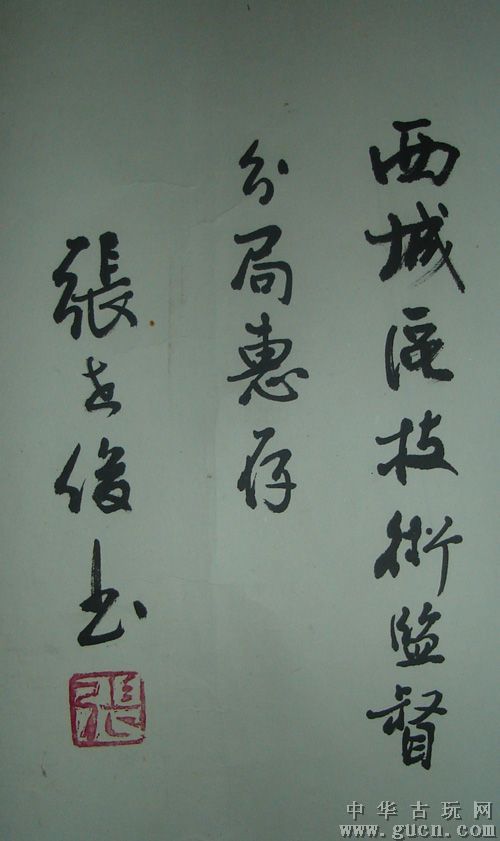 西城區技術監督
分局惠存
張世俊书
張
中华古玩网
www.gucn.com